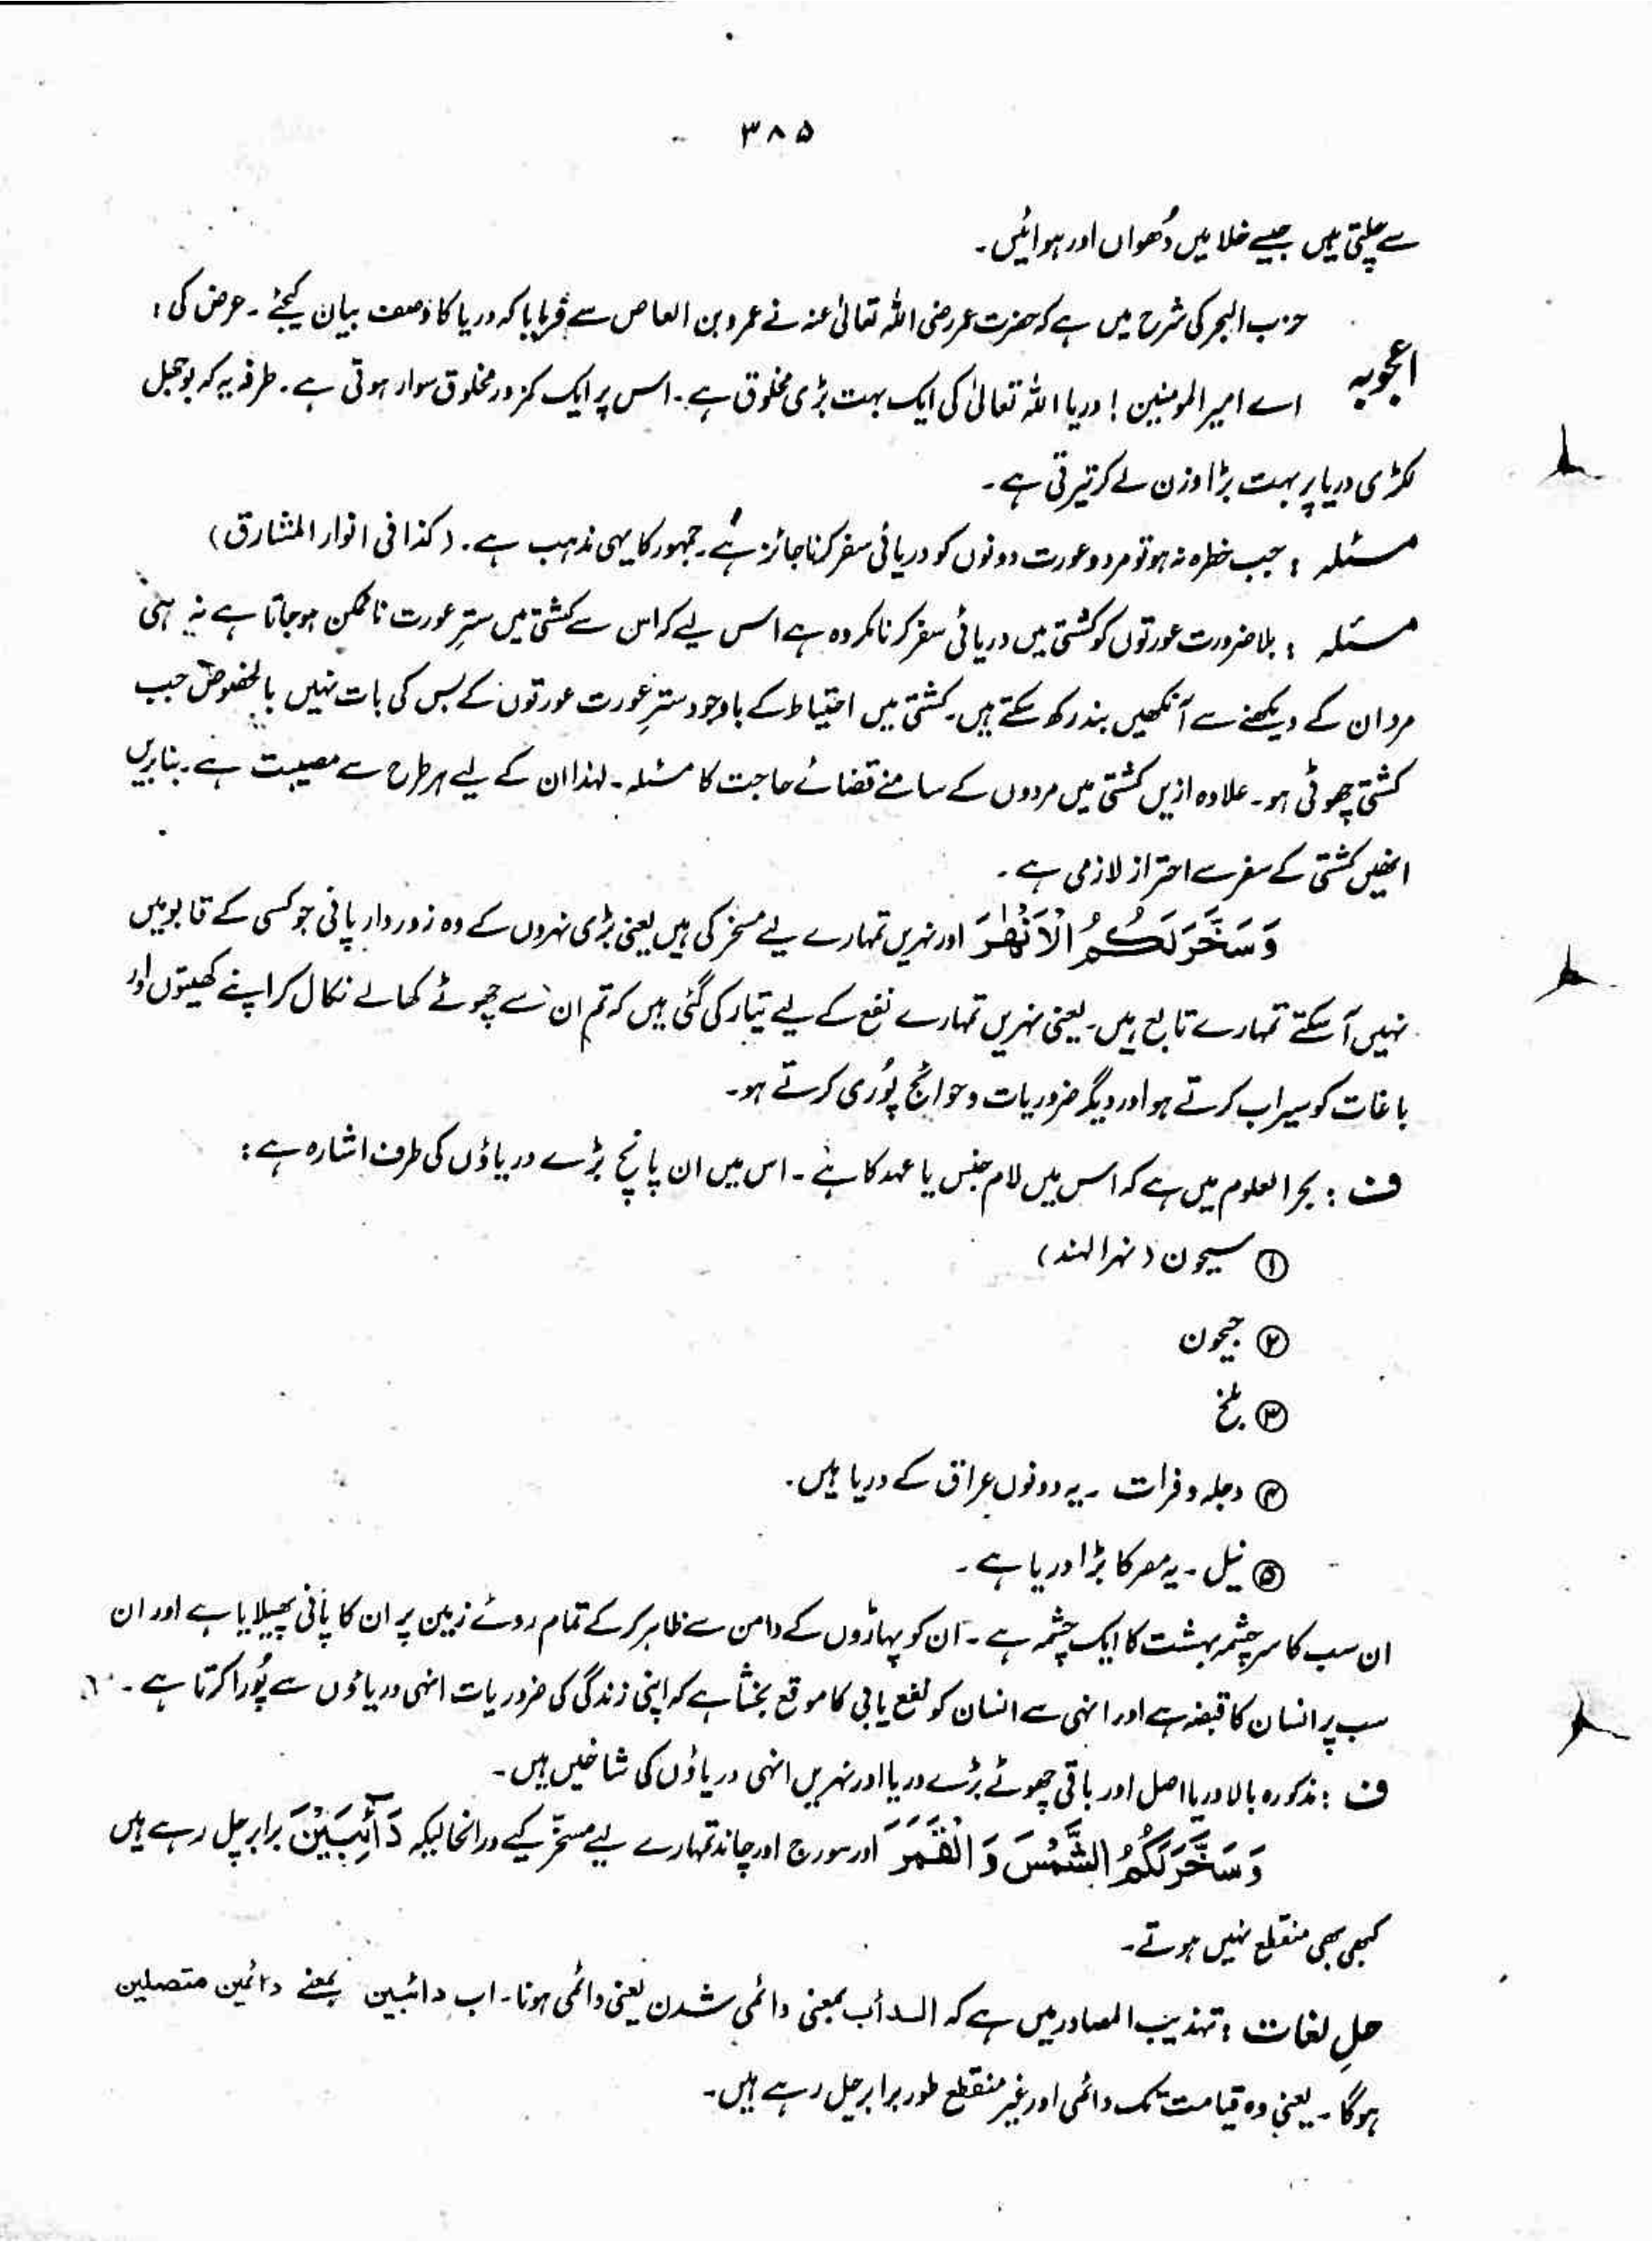 ۳۸۵
سے چلتی ہیں جیسے خلا میں دُھواں اور ہوائیں۔
حزب البحر کی شرح میں ہے کہ حضرت عمر رضی اللہ تعالیٰ عنہ نے عمرو بن العاص سے فرمایا کہ دریا کا وصف بیان کیجئے ۔ عرض کی :
اعجوبہ
اے امیر المومنین ! دریا اللہ تعالیٰ کی ایک بہت بڑی مخلوق ہے ۔ اس پر ایک کمزور مخلوق سوار ہوتی ہے ۔ طرفہ یہ کہ بوجھل
لکڑی دریا پر بہت بڑا وزن لے کر تیرتی ہے ۔
مسئلہ : جب خطرہ نہ ہو تو مرد و عورت دونوں کو دریائی سفر کرنا جائز ہے ۔ جمہور کا یہی مذہب ہے ۔ (کذا فی انوار المشارق)
مسئلہ : بلا ضرورت عورتوں کو کشتی میں دریائی سفر کرنا مکروہ ہے اس لیے کہ اس سے کشتی میں سترِ عورت ناممکن ہو جاتا ہے نہ ہی
مرد ان کے دیکھنے سے آنکھیں بند رکھ سکتے ہیں ۔ کشتی میں احتیاط کے باوجود سترِ عورت عورتوں کے بس کی بات نہیں بالخصوص جب
کشتی چھوٹی ہو ۔ علاوہ ازیں کشتی میں مردوں کے سامنے قضائے حاجت کا مسئلہ ۔ لہٰذا ان کے لیے ہر طرح سے مصیبت ہے ۔ بنا بریں
انھیں کشتی کے سفر سے احتراز لازمی ہے ۔
وَسَخَّرَ لَكُمُ الْاَنْهٰرَ اور نہریں تمہارے لیے مسخر کی ہیں یعنی بڑی نہروں کے وہ زوردار پانی جو کسی کے قابو میں
نہیں آ سکتے تمہارے تابع ہیں ۔ یعنی نہریں تمہارے نفع کے لیے تیار کی گئی ہیں کہ تم ان سے چھوٹے کھالے نکال کر اپنے کھیتوں اور
باغات کو سیراب کرتے ہو اور دیگر ضروریات و حوائج پُوری کرتے ہو۔
ف : بحر العلوم میں ہے کہ اس میں لام جنس یا عہد کا ہے ۔ اس میں ان پانچ بڑے دریاؤں کی طرف اشارہ ہے :
① سیحون (نہر الہند)
② جیحون
③ بلخ
④ دجلہ و فرات ۔ یہ دونوں عراق کے دریا ہیں ۔
⑤ نیل ۔ یہ مصر کا بڑا دریا ہے ۔
ان سب کا سرچشمہ بہشت کا ایک چشمہ ہے ۔ ان کو پہاڑوں کے دامن سے ظاہر کر کے تمام روئے زمین پر ان کا پانی پھیلایا ہے اور ان
سب پر انسان کا قبضہ ہے اور انہی سے انسان کو نفع یابی کا موقع بخشا ہے کہ اپنی زندگی کی ضروریات انہی دریاؤں سے پُورا کرتا ہے ۔
ف : مذکورہ بالا دریا اصل اور باقی چھوٹے بڑے دریا اور نہریں انہی دریاؤں کی شاخیں ہیں ۔
وَسَخَّرَ لَكُمُ الشَّمْسَ وَ الْقَمَرَ اور سورج اور چاند تمہارے لیے مسخّر کیے درانحالیکہ دَآئِبَیْنَ برابر چل رہے ہیں
کبھی بھی منقطع نہیں ہوتے ۔
حلِ لغات : تہذیب المصادر میں ہے کہ الدأب بمعنی دائمی شدن یعنی دائمی ہونا ۔ اب دائبین بمعنے دائمین متصلین
ہوگا ۔ یعنی وہ قیامت تک دائمی اور غیر منقطع طور برابر چل رہے ہیں ۔